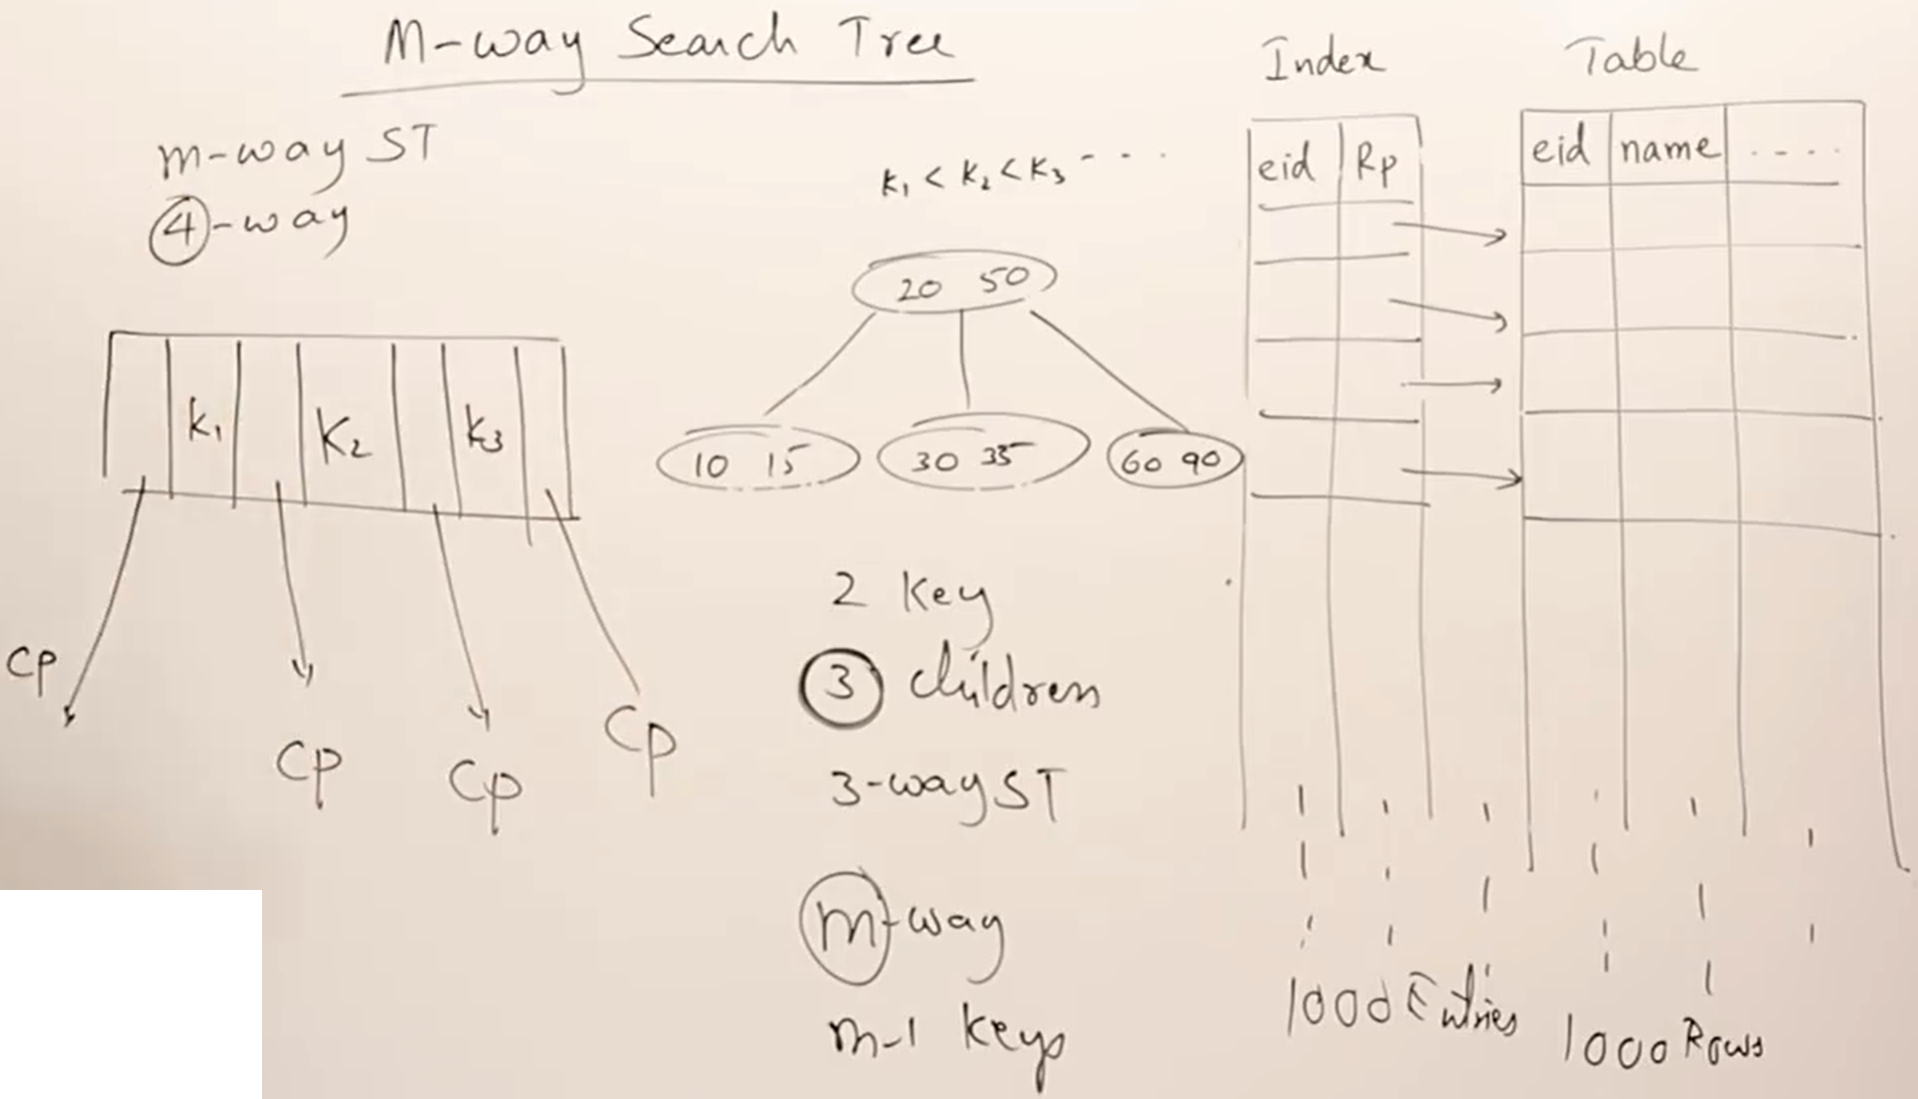 M-way Search Tree
m-way ST
4-way
K1 K2 K3
CP
CP
CP
CP
K1 < K2 < K3 - - -
20 50
10 15
30 35
60 90
2 Key
3 children
3-way ST
m-way
m-1 keys
Index
eid Rp
1000 Entries
Table
eid name ....
1000 Rows